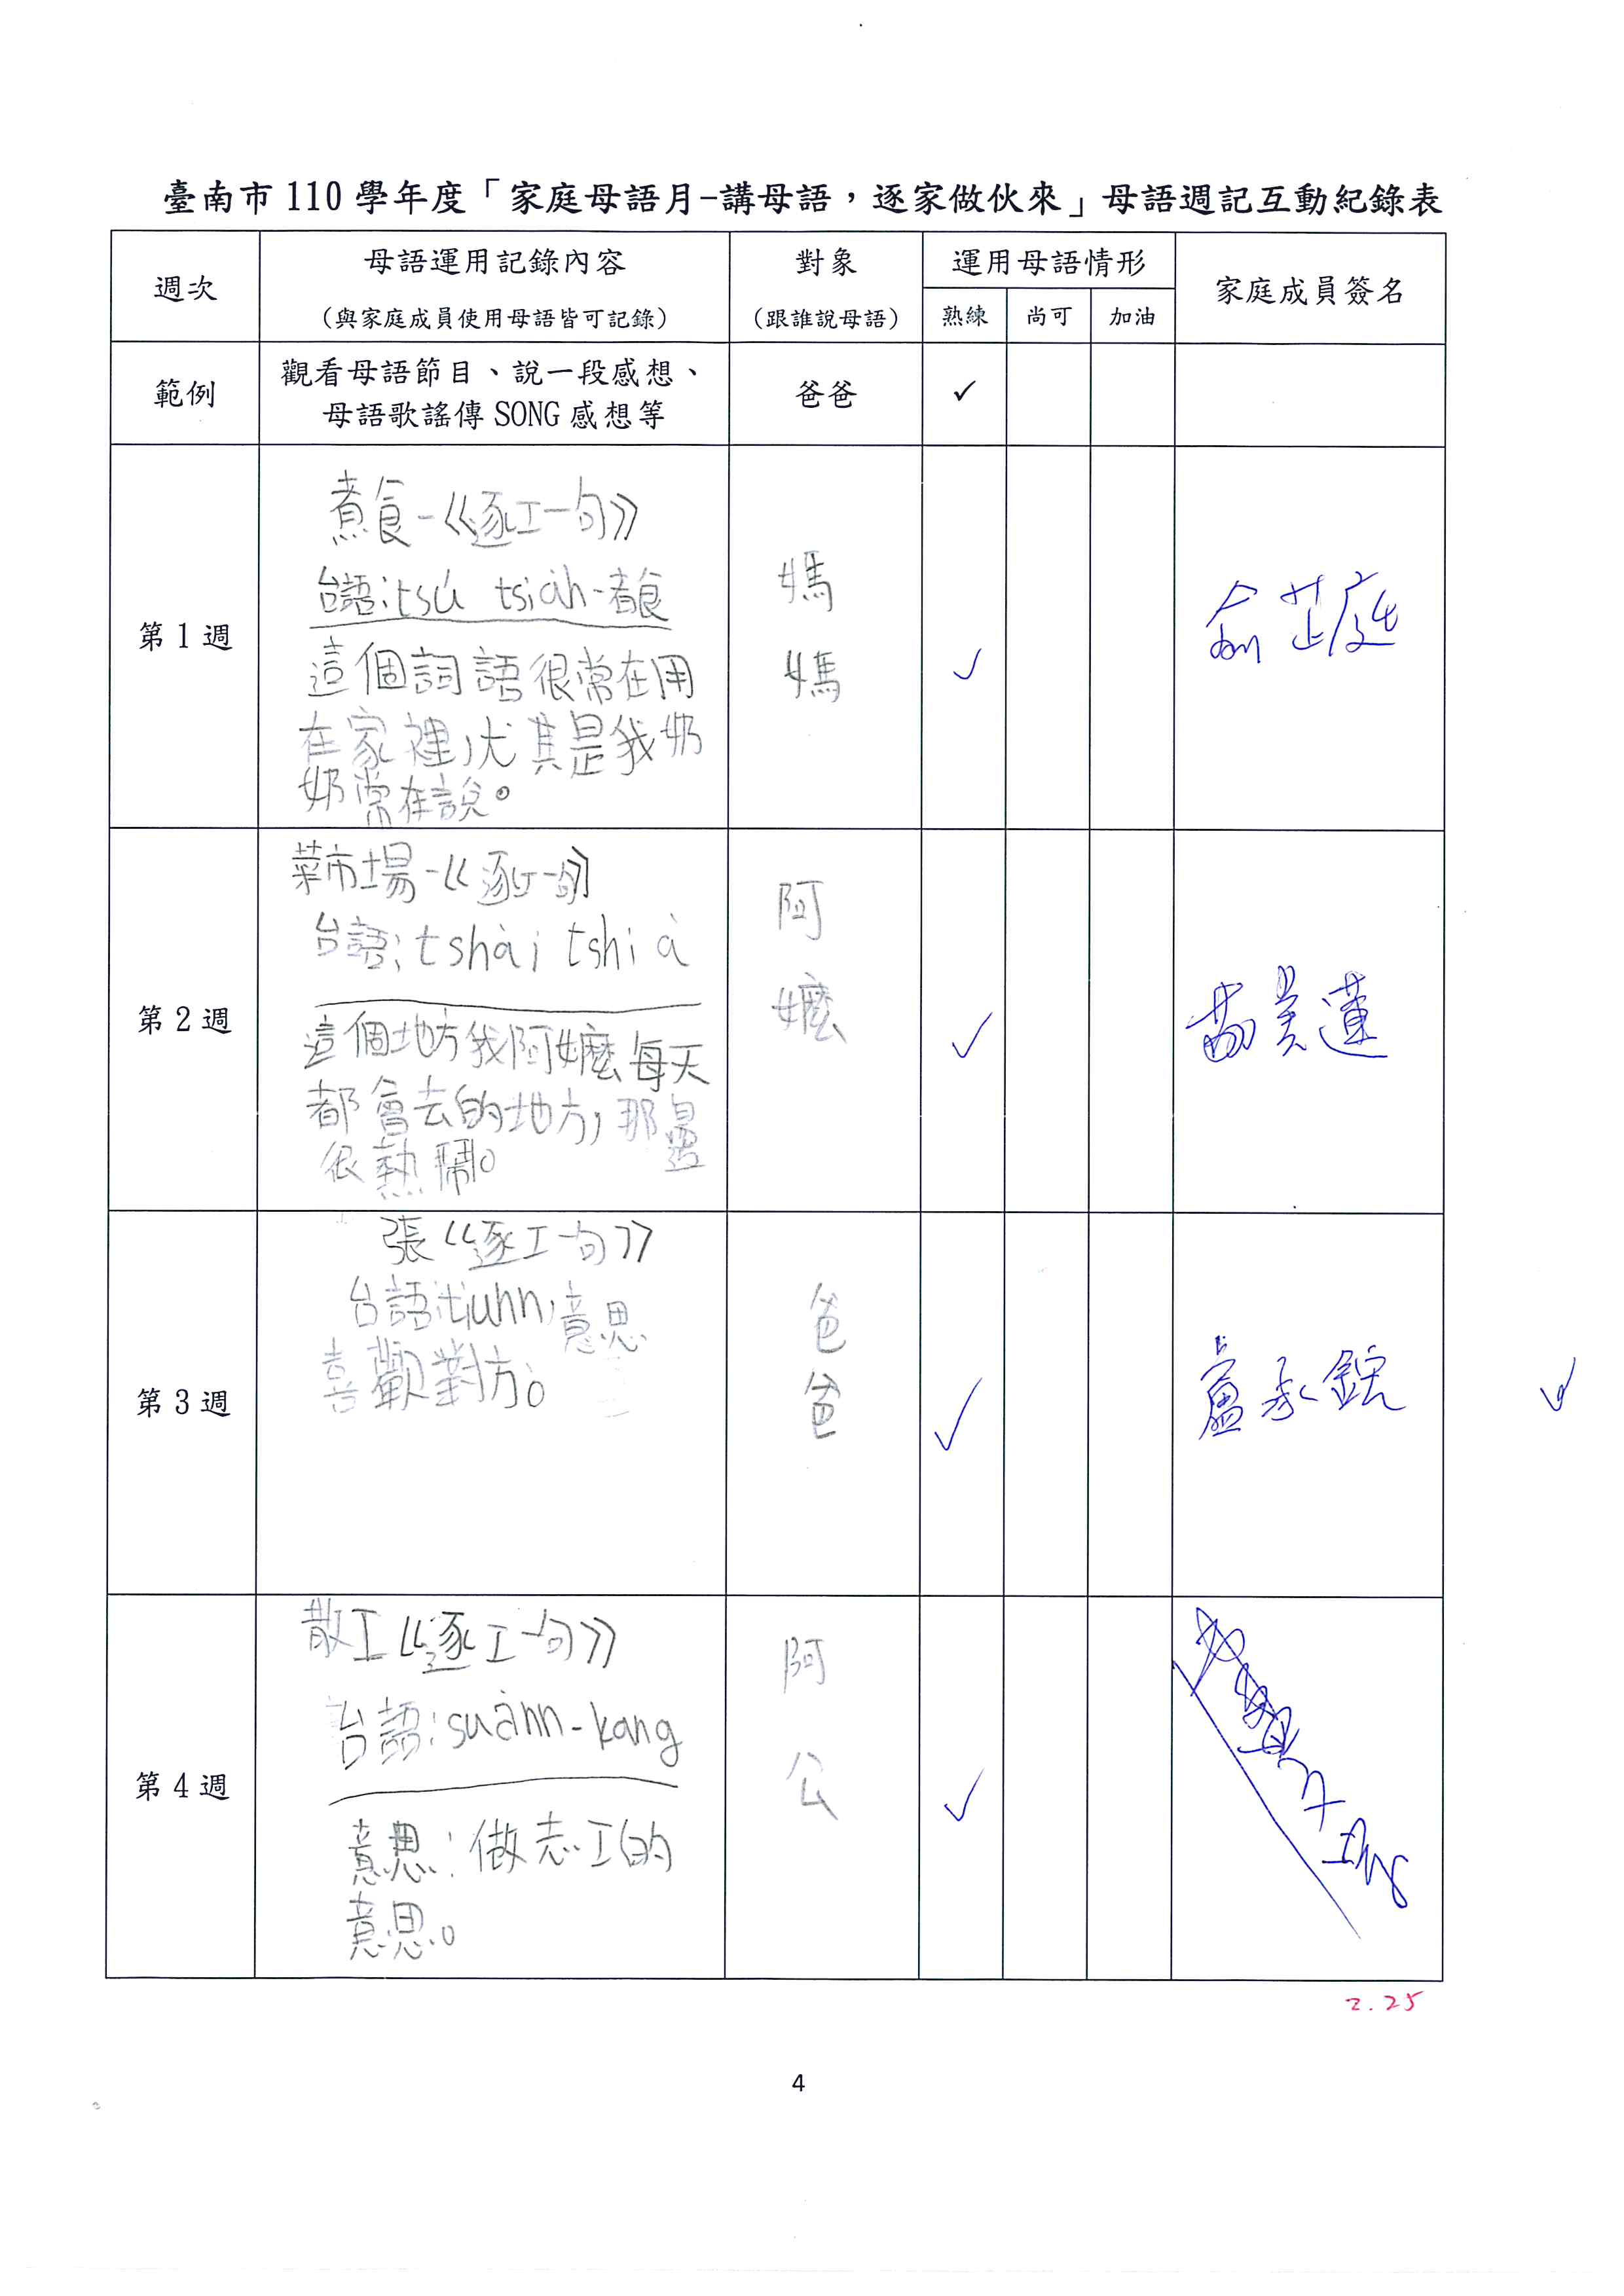 臺南市110學年度「家庭母語月-講母語，逐家做伙來」母語週記互動紀錄表
週次 母語運用記錄內容 （與家庭成員使用母語皆可記錄） 對象 （跟誰說母語） 運用母語情形 家庭成員簽名
熟練 尚可 加油
範例 觀看母語節目、說一段感想、 爸爸 ✓
母語歌謠傳SONG感想等
第1週
煮食-《逐工一句》
台語:tsú tsia̍h-煮食
這個詞語很常在用
在家裡,尤其是我奶
奶常在說。
媽
媽
✓
俞芷庭
第2週
菜市場-《逐工一句》
台語:tshài tshi à
這個地方我阿嬤每天
都會去的地方,那邊
很熱鬧。
阿
嬤
✓
第3週
張《逐工一句》
台語:tiunn,意思
喜歡對方。
爸
爸
✓
盧承鋐
✓
第4週
散工《逐工一句》
台語:suànn-kang
意思:做志工的
意思。
阿
公
✓
2.25
4